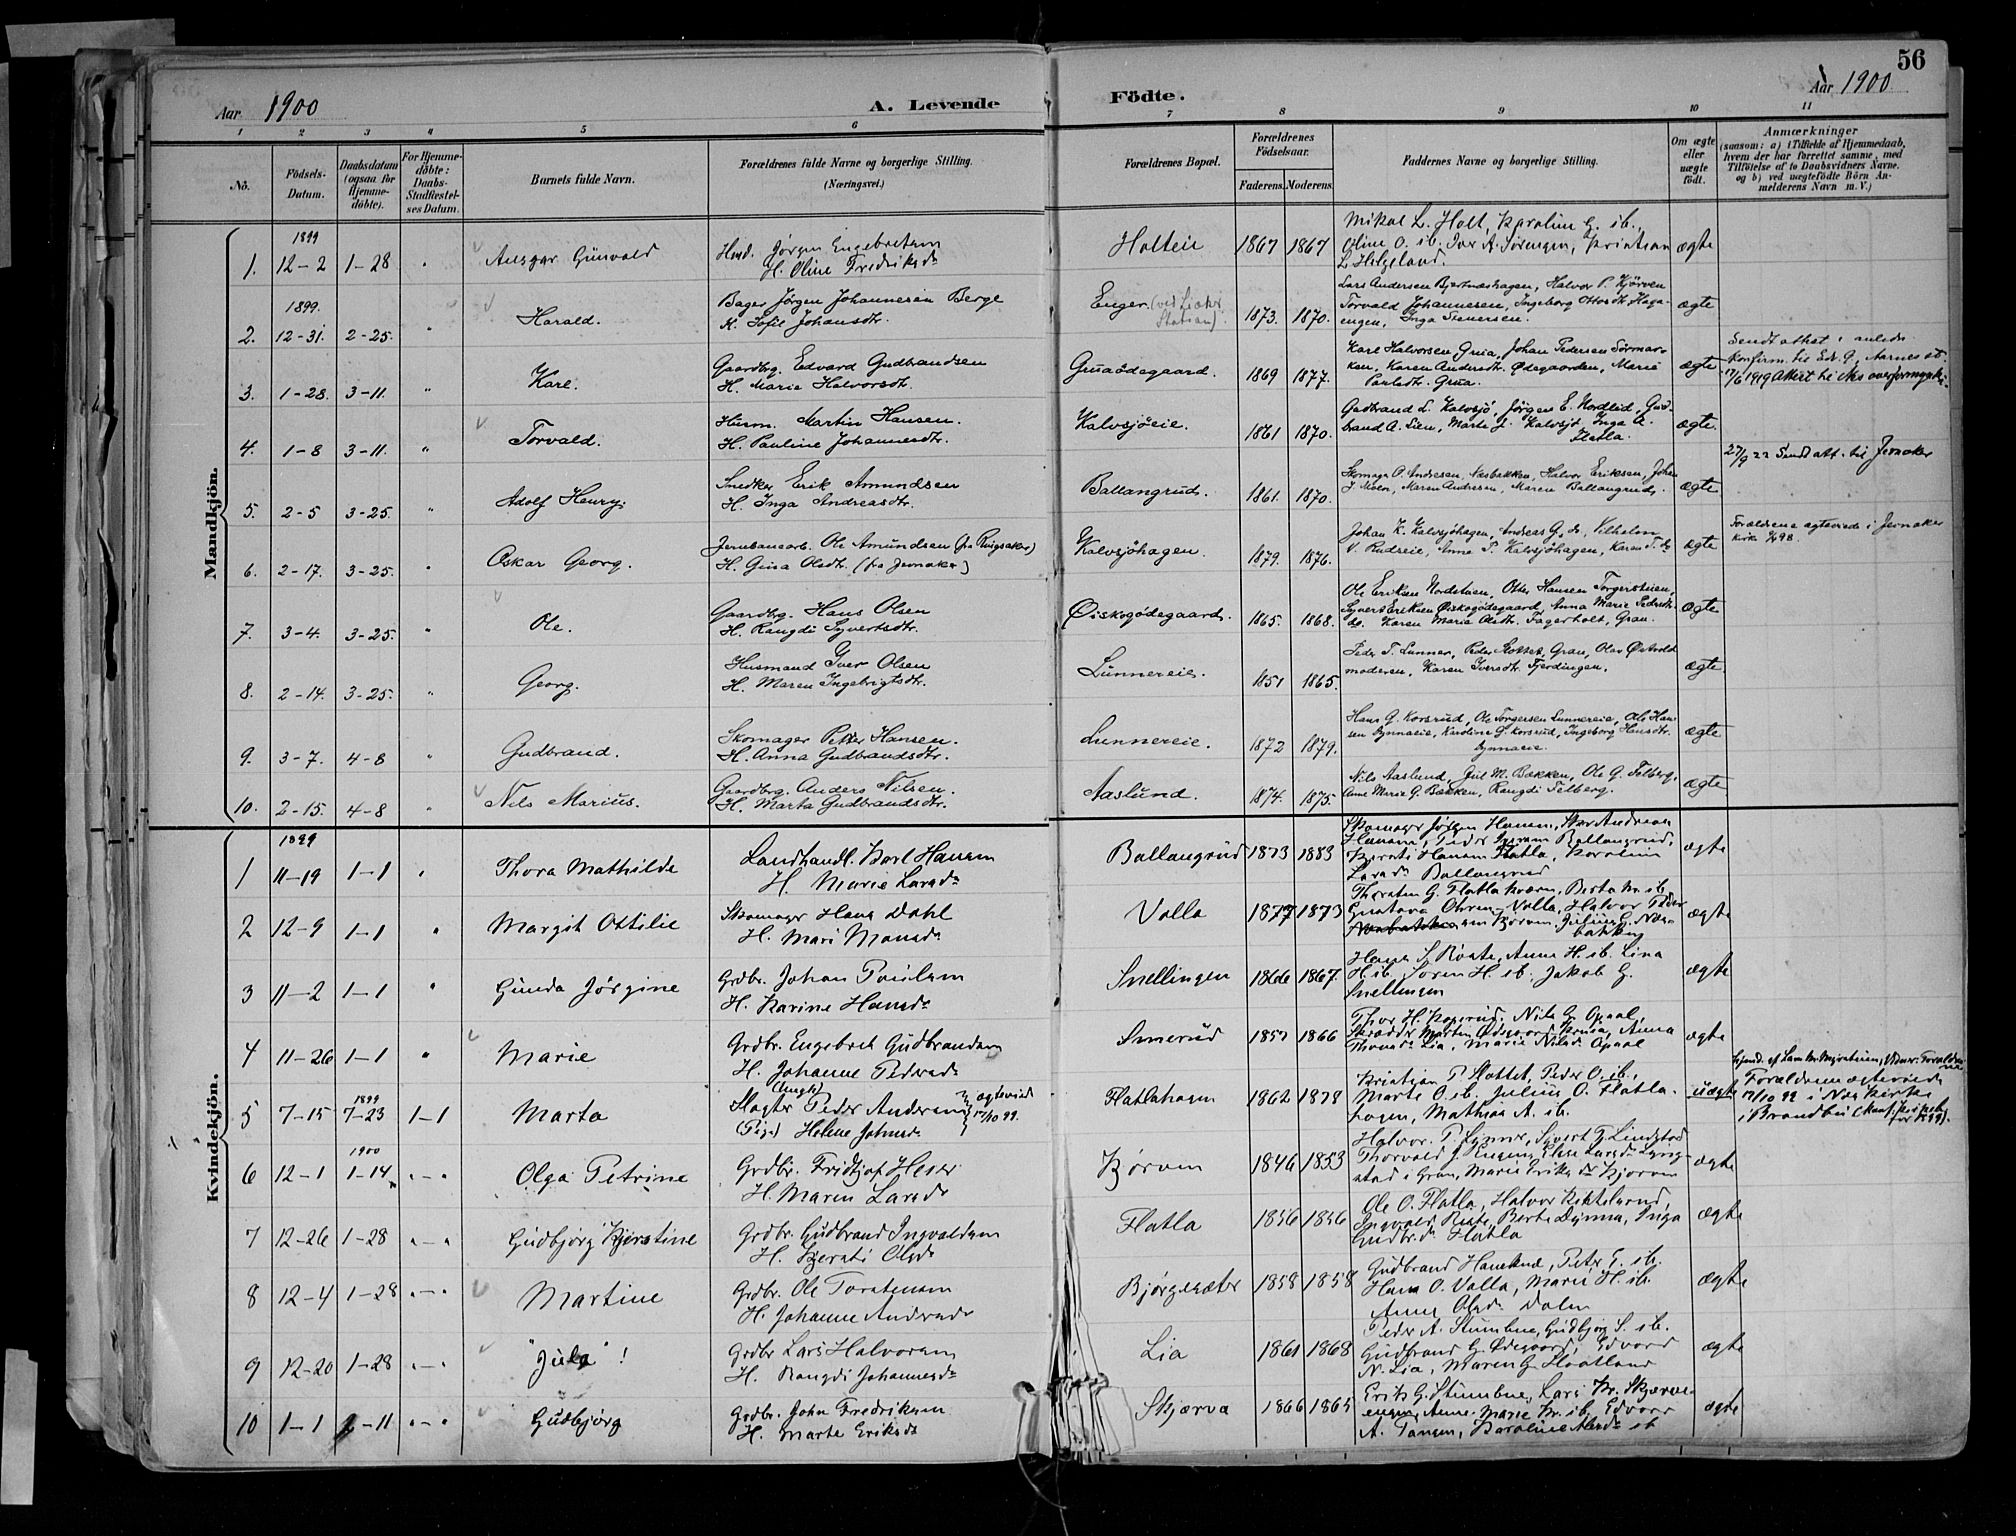 56
Aar 1900
A. Levende
Födte.
Aar 1900
1 2 3 4 5 6 7 8 9 10 11
No.
Födsels-Datum.
Daabsdatum (ogsaa for Hjemme-döbte).
For Hjemme-döbte: Daabs-Stadfæstel-ses Datum.
Barnets fulde Navn.
Forældrenes fulde Navne og borgerlige Stilling.
(Næringsvei.)
Forældrenes Bopæl.
Forældrenes Födselsaar.
Faderens. Moderens.
Faddernes Navne og borgerlige Stilling.
Om ægte eller uægte födt.
Anmærkninger
(saasom: a) i Tilfælde af Hjemmedaab,
hvem der har forrettet samme, med
Tilföielse af to Daabsvidners Navne.
og b) ved uægtefödte Börn An-
melderens Navn m. V.)
Mandkjön.
1899
1. 12-2 1-28 Ansgar Gunvald
Jørgen Engebretsen
H. Oline Fredriksdr
Holteie 1867 1867
Mikal L. Holt, Karoline G. ib.
Oline O. ib. Iver A. Sørensen, Kristian
L. Helgeland.
ægte
1899.
2. 12-31. 2-25. " Harald.
Bager Jörgen Johannesen Berge
K. Sofie Johansdtr.
Enger (ved Lunner Station). 1873. 1870.
Lars Andersen Bjertnæshagen, Halvor P. Kjørven
Torvald Johannesen, Ingeborg Ottosdtr. Haga-
engen, Inga Stenersen.
ægte
3. 1-28. 3-11. " Karl.
Gaardbrg. Edvard Gudbrandsen
H. Marie Halvorsdtr.
Gruaødegaard. 1869 1877.
Karl Halvorsen Grua, Johan Pedersen Sörmar-
ken, Karen Andersdtr. Ødegaarden, Marie
Paulsdtr. Grua.
ægte
Sendt attest i anledn
konfirm. til Edv. G. Aarnes st.
17/6 1919 Attest til Nes overformynderi
4. 1-8 3-11. " Torvald.
Husm. Martin Hansen.
H. Pauline Johannesdtr.
Kalvsjöeie. 1861 1870.
Gudbrand L. Kalvsjö, Jörgen E. Nordlid, Gud-
brand A. Lien, Marte J. Kalvsjö, Inga A.
Flatla.
ægte.
5. 2-5 3-25. " Adolf Henry.
Snedker Erik Amundsen
H. Inga Andreasdtr.
Ballangrud. 1861. 1870.
Skomager O. Andresen, Næsbakken, Halvor Eriksen, Johan
J. Moen, Maren Andresen, Maren Ballangrud.
ægte
27/9 22 Sendt att. til Jevnaker
6. 2-17. 3-25. " Oskar Georg.
Jernbanearb. Ole Amundsen (fra Ringsaker)
H. Gina Olsdtr. (fra Jevnaker)
Kalvsjöhagen. 1879. 1876.
Johan K. Kalvsjöhagen, Andreas G. do, Vilhelm
V. Rudseie, Anne P. Kalvsjöhagen, Karen T. do
ægte
Forældrene ægteviede i Jevnaker
kirke 98.
7. 3-4. 3-25. " Ole.
Gaardbrg. Hans Olsen
H. Rangdi Syvertsdtr.
Øiskogödegaard. 1865. 1868.
Ole Eriksen Nordstuen, Otter Hansen Torgerstuen,
Syvert Eriksen Øiskogödegaard, Anna Marie Pedersdtr.
do. Karen Maria Olsdtr. Fagerholt, Gran.
ægte
8. 2-14. 3-25. " Georg.
Husmand Iver Olsen
H. Maren Ingebrigtsdtr.
Lunnereie. 1851 1865.
Peder T. Lunner, Peder Stokket, Gran, Olav Østvold
moderen, Karen Iversdtr. Fjerdingen.
ægte.
9. 3-7. 4-8 " Gudbrand.
Skomager Petter Hansen.
H. Anna Gudbrandsdtr.
Lunnereie. 1872 1879.
Hans G. Korsrud, Ole Torgersen Lunnereie, Ole Han-
sen Dynnaeie, Kardine G. Korsrud, Ingeborg Hansdtr.
Dynnaeie.
ægte
10. 2-15. 4-8 " Nils Marius.
Gaardbrg. Anders Nilsen.
H. Marta Gudbrandsdtr.
Aaslund. 1874. 1875.
Nils Aaslund, Juil M. Bakken, Ole G. Felberg.
Anne Marie G. Bakken, Rangdi Felberg.
ægte
Kvindekjön.
1899
1 11-19 1-1 Thora Mathilde
Landhandl. Karl Hansen
H. Marie Larsdr
Ballangrud 1873 1883
Skomager Jørgen Hansen, Skom Andreas
Hansen, Peder Iversen Ballangrud,
Kjersti Hansen Flatla, Karoline
Larsdr Ballangrud
ægte
2 12-9 1-1 " Margit Ottilie
Skomager Hans Dahl
H. Mari Monsdr
Volla 1877 1873
Thorsten G. Flatlakværn, Berta Kr. ib.
Gustava Ohren Volla, Halvor Peder
sen Kjørven, Julius G. Næs-
bakken
ægte
3 11-2 1-1 " Gunda Jörgine
Grdbr. Johan Paulsen
H. Karine Hansdr
Snellingen 1866 1867.
Hans S. Roste, Anna H. ib. Lina
H. ib. Søren H. ib. Jakob G.
Snellingen
ægte
4 11-26 1-1 " Marie
Grdbr. Engebret Gudbrandsen
H. Johanne Pedersdr
Smerud 1857 1866
Thor H. Kogerud, Nils G. Opaal,
Skrædder Martin Ødegaard Grua, Anna
Thorsdr Lia, Marie Nilsdr Opaal
ægte
5 7-15 1899 7-23 1-1 Marta
(Ungk) Slagter Peder Andersen
(Pige) Helene Johnsdr
ægteviede 17/10 99.
Flatlahagen 1862 1878
Kristian P. Slottet, Peder O. ib.,
Marte O. ib. Julius O. Flatla-
hagen, Mathias A. ib.
uægte
Forældrene ægteviede
17/10 99 i Næs Kirke
i Brandbu
6 12-1 1900 1-14 " Olga Petrine
Grdbr. Fridtjof Heier
H. Maren Larsdr
Kjørven 1846 1853
Halvor P. Lynne, Syvert G. Lindstad
Thorvald J. Engen, Else Larsdr Lyng-
stad i Gran, Marie Eriksdr Kjørven
ægte
7 12-26 1-28 "-" Gudbjørg Kjerstine
Grdbr. Gudbrand Ingvaldsen
H. Kjersti Olsdr
Flatla 1856 1856
Ole O. Flatla, Halvor Kittelsrud,
Ingvald Roste, Berte Dynna, Inga
Gudbr.dr Flatla
ægte
8 12-4 1-28 "-" Martine
Grdbr. Ole Torstensen
H. Johanne Andersdr
Bjørgesæter 1858 1858
Gudbrand Haneknæ, Peter E. ib.
Hans O. Volla, Marie H. ib.
Anne Olsdr Dalen
ægte
9 12-20 1-28 "-" "Jule"!
Grdbr Lars Halvorsen
H. Rangdi Johannesdr
Lia 1861 1868
Peder A. Stumbne, Gudbjørg S. ib.
Gudbrand G. Ødegaard, Edvard
N. Lia, Maren G. Hovland
ægte
10 1-1 2-11 "-" Gudbjørg
Grdbr. John Fredriksen
H. Marte Eriksdr
Skjærva 1866 1865
Erik G. Stumbne, Lars Kr. Skjærva-
engen, Anne Marie Kr. ib. Edvard
A. Tangen, Karoline Alersdr ib
ægte